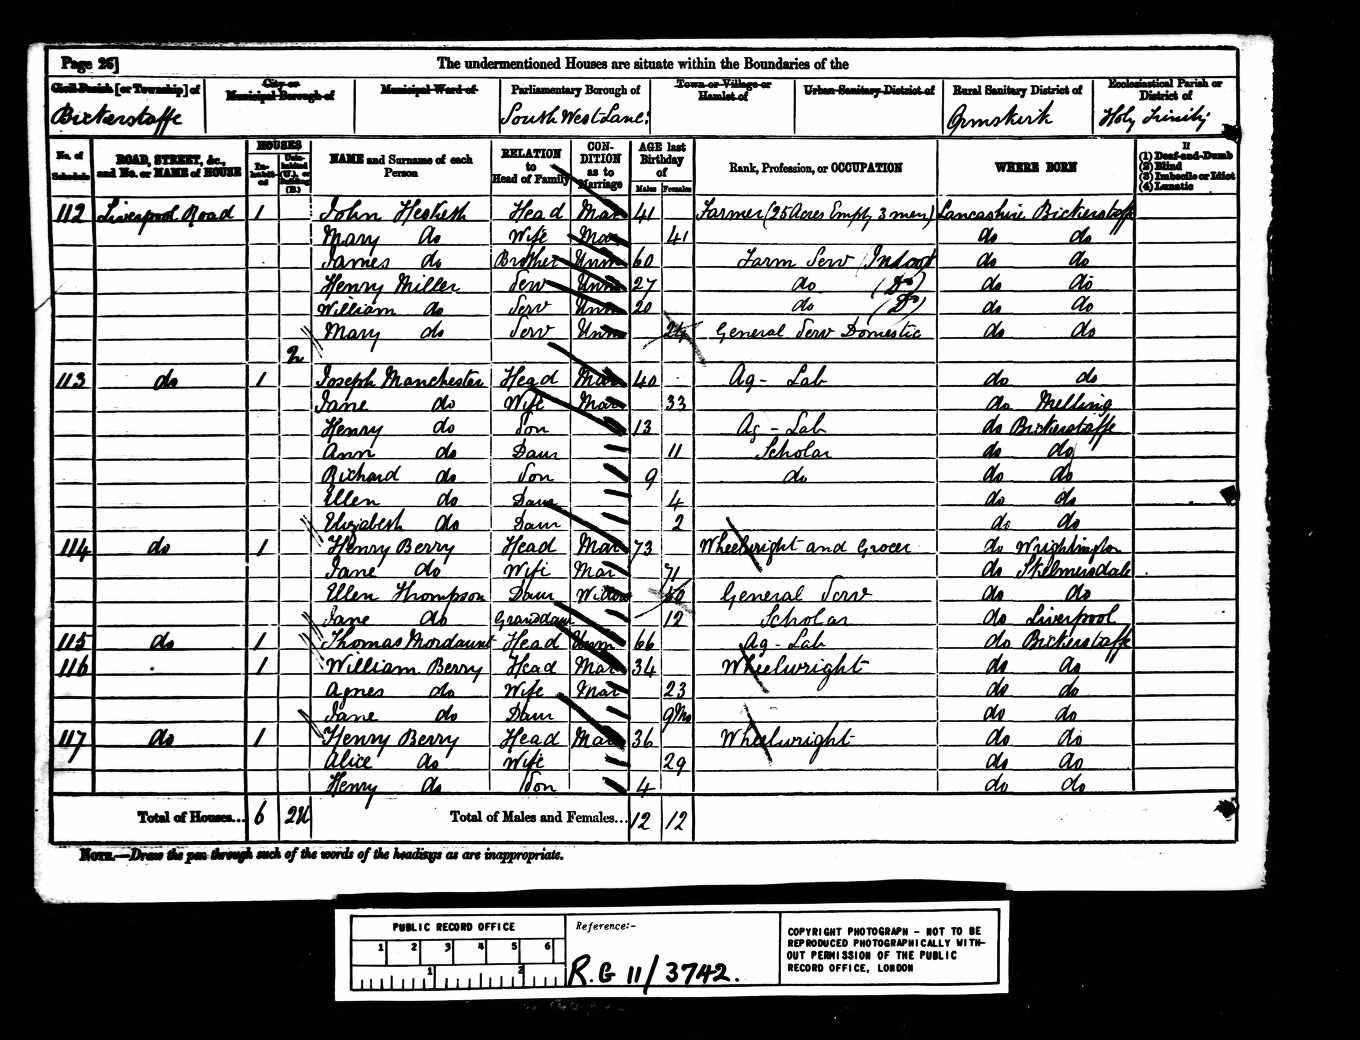 Page 26]
The undermentioned Houses are situate within the Boundaries of the
Civil Parish [or Township] of
City or Municipal Borough of
Municipal Ward of
Parliamentary Borough of
Town or Village or Hamlet of
Urban Sanitary District of
Rural Sanitary District of
Ecclesiastical Parish or District of
Bickerstaffe South West Lanc: Ormskirk Holy Trinity
No. of Schedule
ROAD, STREET, &c., and No. or NAME of HOUSE
HOUSES
Inhabited
Uninhabited (U.), or Building (B.)
NAME and Surname of each Person
RELATION to Head of Family
CONDITION as to Marriage
AGE last Birthday of
Males Females
Rank, Profession, or OCCUPATION
WHERE BORN
If
(1) Deaf-and-Dumb
(2) Blind
(3) Imbecile or Idiot
(4) Lunatic
112 Liverpool Road 1 John Hesketh Head Mar 41 Farmer (25 Acres Emply 3 men) Lancashire Bickerstaffe
Mary do Wife Mar 41 do do
James do Brother Unm 60 Farm Serv (Indoor do do
Henry Miller Serv Unm 27 do (Do) do do
William do Serv Unm 20 do (Do) do do
Mary do Serv Unm 24 General Serv Domestic do do
2u
113 do 1 Joseph Manchester Head Mar 40 Ag - Lab do do
Jane do Wife Mar 33 do Melling
Henry do Son 13 Ag - Lab do Bickerstaffe
Ann do Daur 11 Scholar do do
Richard do Son 9 do do do
Ellen do Daur 4 do do
Elizabeth do Daur 2 do do
114 do 1 Henry Berry Head Mar 73 Wheelwright and Grocer do Wrightington
Jane do Wife Mar 71 do Skelmersdale
Ellen Thompson Daur Widow General Serv do do
Jane do Granddaur 12 Scholar do Liverpool
115 do 1 Thomas Mordaunt Head Unm 66 Ag - Lab do Bickerstaffe
116 . 1 William Berry Head Mar 34 Wheelwright do do
Agnes do Wife Mar 23 do do
Jane do Daur 9 Mo do do
117 do 1 Henry Berry Head Mar 36 Wheelwright do do
Alice do Wife 29 do do
Henry do Son 4 do do
Total of Houses... 6 2U Total of Males and Females... 12 12
NOTE.—Draw the pen through such of the words of the headings as are inappropriate.
PUBLIC RECORD OFFICE
1 2 3 4 5 6
1 2
Reference:-
R.G 11/3742.
COPYRIGHT PHOTOGRAPH - NOT TO BE
REPRODUCED PHOTOGRAPHICALLY WITH-
OUT PERMISSION OF THE PUBLIC
RECORD OFFICE, LONDON